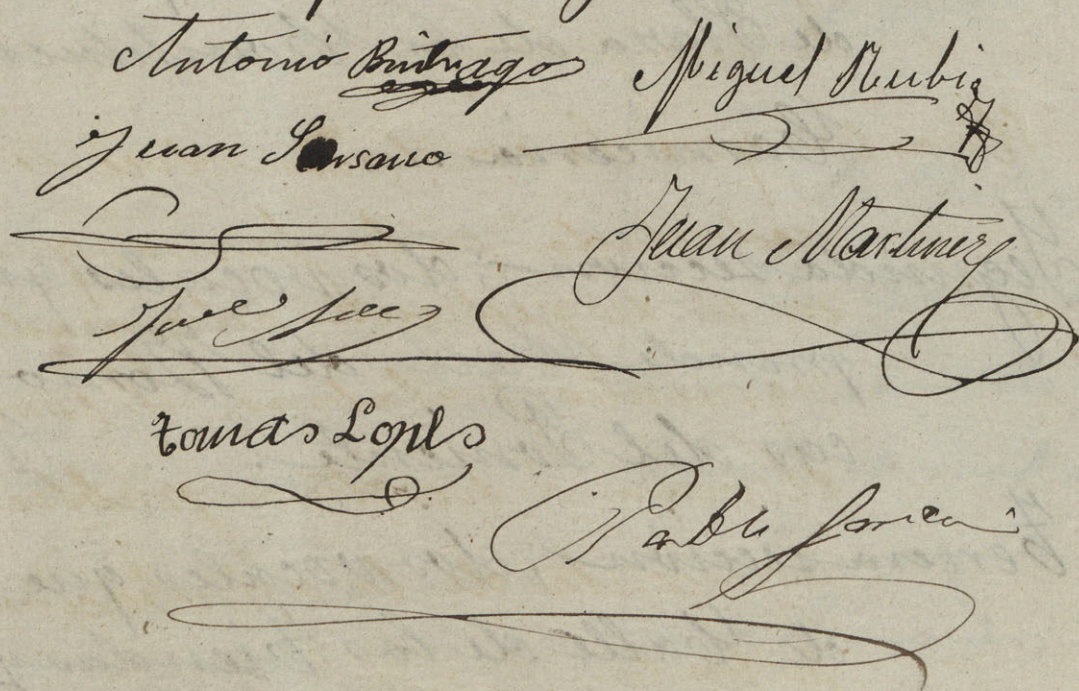 Antonio Buitrago Miguel Rubio
Juan Sorsano
Juan Martinez
José
tomas Lopes
Pablo Garcia